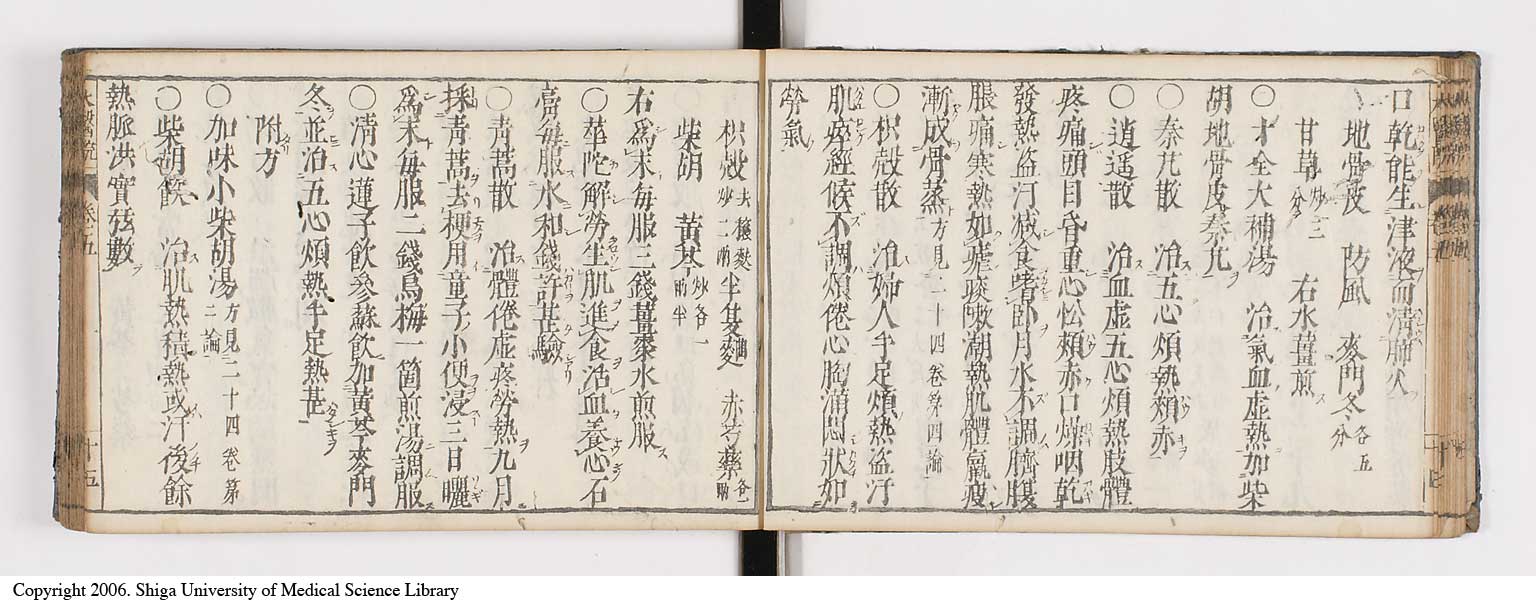 口乾能生津液而清肺火
地骨皮　防風　麥門冬各五分
甘草炒三分　右水薑煎
〇十全大補湯　治氣血虛熱加柴
胡地骨皮秦艽
〇秦艽散　治五心煩熱頰赤
〇逍遥散　治血虛五心煩熱肢體
疼痛頭目昏重心忪頰赤口燥咽乾
發熱盜汗减食嗜卧月水不調臍腹
脹痛寒熱如瘧痰嗽潮熱肌體羸瘦
漸成骨蒸方見二十四卷第四論
〇枳殻散　治婦人手足煩熱盜汗
肌瘁經候不調煩倦心胸滿悶狀如
勞氣
枳殻去穰麩炒二兩　半夏麯　赤芍藥各一兩
柴胡　黄芩炒各一兩半
右爲末每服三錢薑棗水煎服
〇華陀解勞生肌進食活血養心石
膏每服水和錢許甚驗
〇青蒿散　治體倦虛疼勞熱九月
採青蒿去梗用童子小便浸三日曬
爲末每服二錢烏梅一箇煎湯調服
〇清心蓮子飲參蘇飲加黄芩麥門
冬並治五心煩熱手足熱甚
附方
〇加味小柴胡湯方見二十四卷第二論
〇柴胡飲　治肌熱積熱或汗後餘
熱脈洪實弦數
十五
Copyright 2006. Shiga University of Medical Science Library